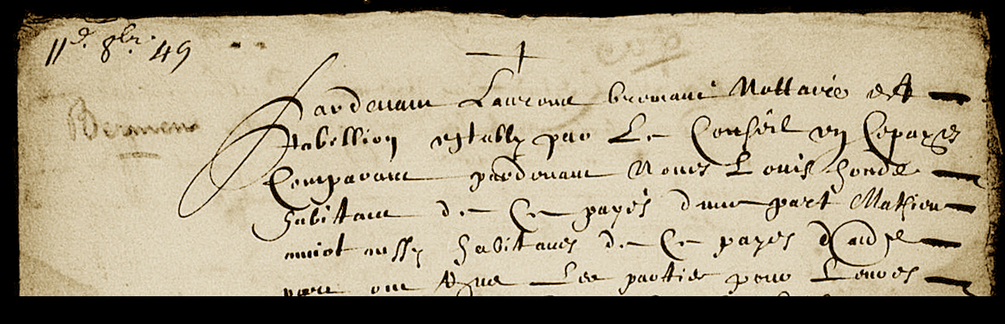 11e 8bre 49
Bermen
Pardevant Laurent bermant Nottaire et
tabellion establÿ par Le Conseil en Ce païs
Comparant pardevant Nous Louis houde
habitant de Ce payés d'une part Mathieu
amiot aussÿ habitant de Ce payés d'autre
part Les parties pour Leurs